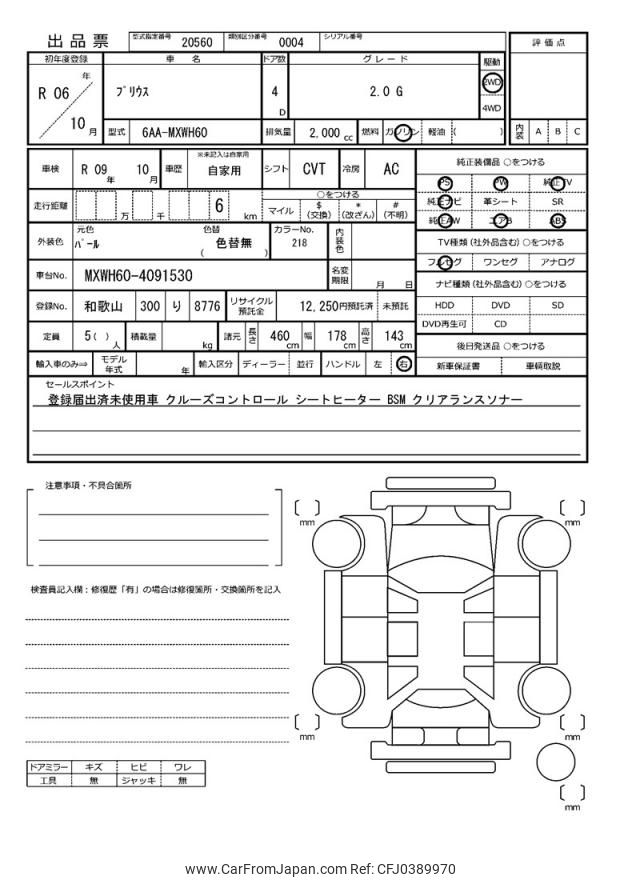 出品票 型式指定番号 20560 類別区分番号 0004 シリアル番号
評価点
初年度登録 車名 ドア数 グレード 駆動
R 06 年 10 月 プリウス 4 D 2.0 G 2WD 4WD
型式 6AA-MXWH60 排気量 2,000 cc 燃料 ガソリン 軽油 ( )
内装 A B C
車検 R 09 年 10 月 車歴 ※未記入は自家用 自家用 シフト CVT 冷房 AC
純正装備品 ○をつける
PS PW 純正TV
走行距離 万 千 6 km ○をつける
マイル $(交換) *(改ざん) #(不明)
純正ナビ 革シート SR
純正AW エアB ABS
外装色 元色 パール 色替 色替無 ( ) カラーNo. 218 内装色
TV種類(社外品含む)○をつける
フルセグ ワンセグ アナログ
車台No. MXWH60-4091530 名変期限 月 日
ナビ種類(社外品含む)○をつける
登録No. 和歌山 300 り 8776 リサイクル預託金 12,250円預託済 未預託
HDD DVD SD
DVD再生可 CD
定員 5( )人 積載量 kg 諸元 長さ 460 cm 幅 178 cm 高さ 143 cm
後日発送品 ○をつける
輸入車のみ⇒ モデル年式 年 輸入区分 ディーラー 並行 ハンドル 左 右
新車保証書 車輌取説
セールスポイント
登録届出済未使用車 クルーズコントロール シートヒーター BSM クリアランスソナー
注意事項・不具合箇所
mm
mm
検査員記入欄：修復歴「有」の場合は修復箇所・交換箇所を記入
mm
mm
mm
ドアミラー キズ ヒビ ワレ
工具 無 ジャッキ 無
www.CarFromJapan.com Ref: CFJ0389970